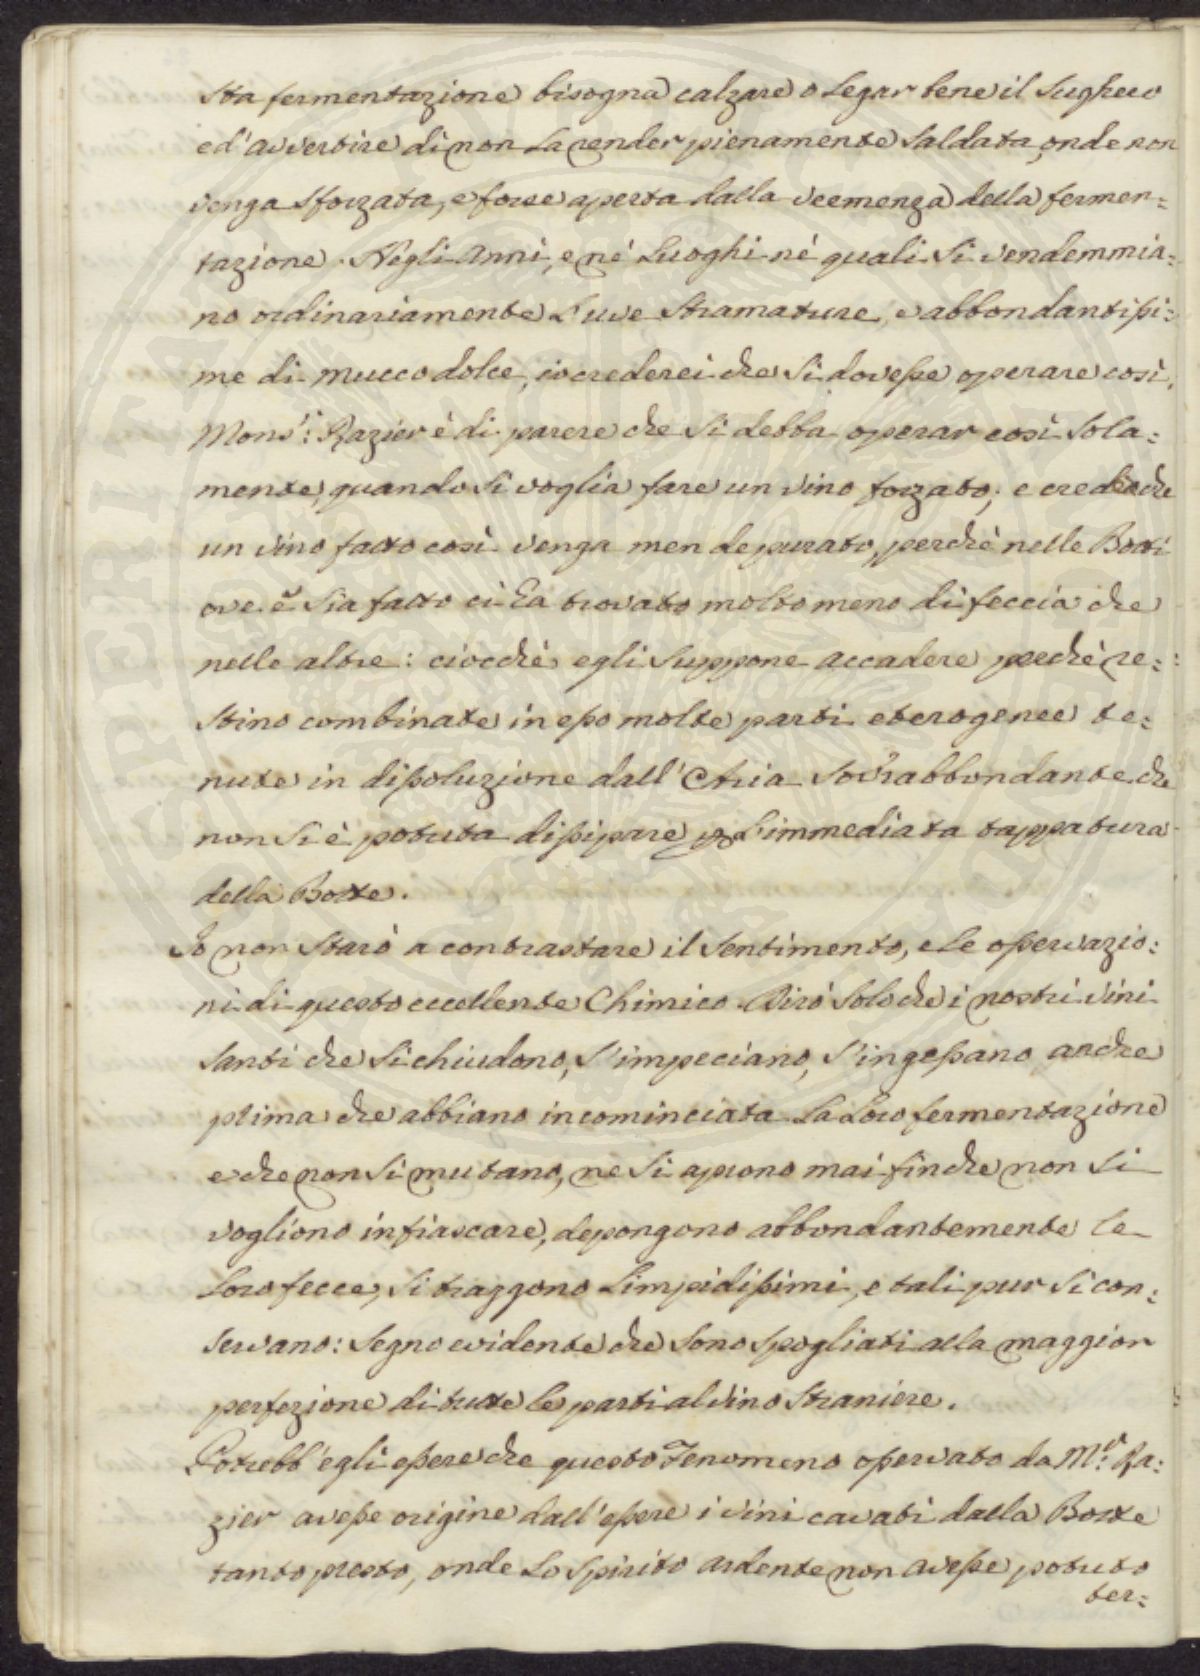 sta fermentazione bisogna calzare o legar bene il sughero
ed' avvertire di non la render pienamente saldata, onde non
venga sforzata, e forse aperta dalla veemenza della fermen=
tazione. Negli anni, e ne' luoghi ne' quali si vendemmia=
no ordinariamente l'uve stramature, e abbondantissi=
me di mucco dolce, io crederei che si dovesse operare così.
Mons.r Razier è di parere che si debba operar così sola=
mente, quando si voglia fare un vino forzato; e crede che
un vino fatto così venga men depurato, perchè nelle Botti
ove è sia fatto ci ha trovato molto meno di feccia che
nelle altre: ciocchè egli suppone accadere perchè re=
stino combinate in esso molte parti eterogenee te=
nute in dissoluzione dall' Aria sovrabbondante che
non si è potuta dissipare p l'immediata tappatura
della Botte.
Io non starò a contrastare il sentimento, e le osservazio=
ni di questo eccellente Chimico. Dirò solo che i nostri vini
santi che si chiudono, s'impeciano, s'ingessano anche
prima che abbiano incominciata la loro fermentazione
e che non si mutano, ne si aprono mai finche non si
vogliono infiascare, depongono abbondantemente le
loro fecce, si traggono limpidissimi, e tali pur si con=
servano: segno evidente che sono spogliati alla maggior
perfezione di tutte le parti al vino straniere.
Potrebb' egli essere che questo Fenomeno osservato da M.r Ra=
zier avesse origine dall' essere i vini cavati dalla Botte
tanto presto, onde lo spirito ardente non avesse potuto
ter=